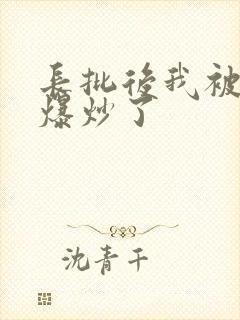 長批後我被
爆炒了
沈青千